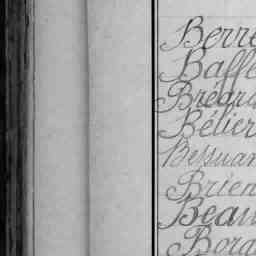 Berre
Baffe
Breard
Bélier
Bessuan
Brien
Beau
Bora